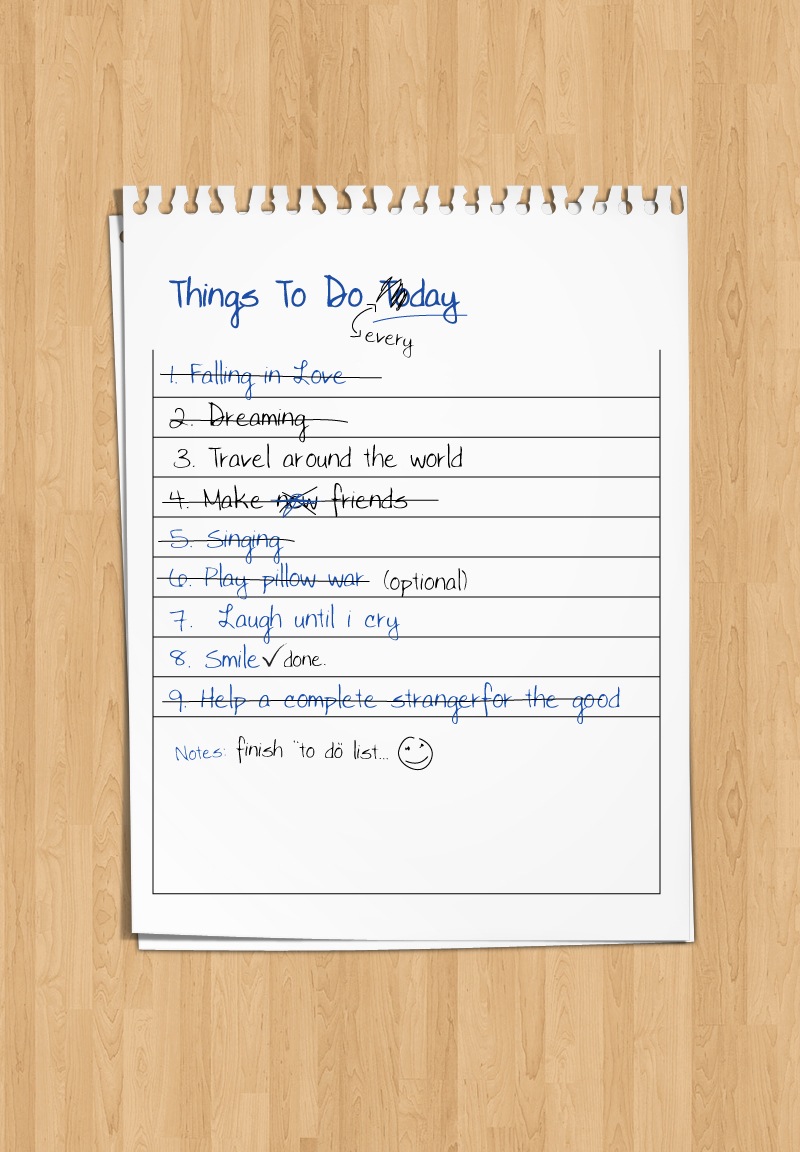 Things To Do Today
every
1. Falling in Love
2. Dreaming
3. Travel around the world
4. Make new friends
5. Singing
6. Play pillow war (optional)
7. Laugh until i cry
8. Smile ✓ done.
9. Help a complete stranger for the good
Notes: finish "to do" list...